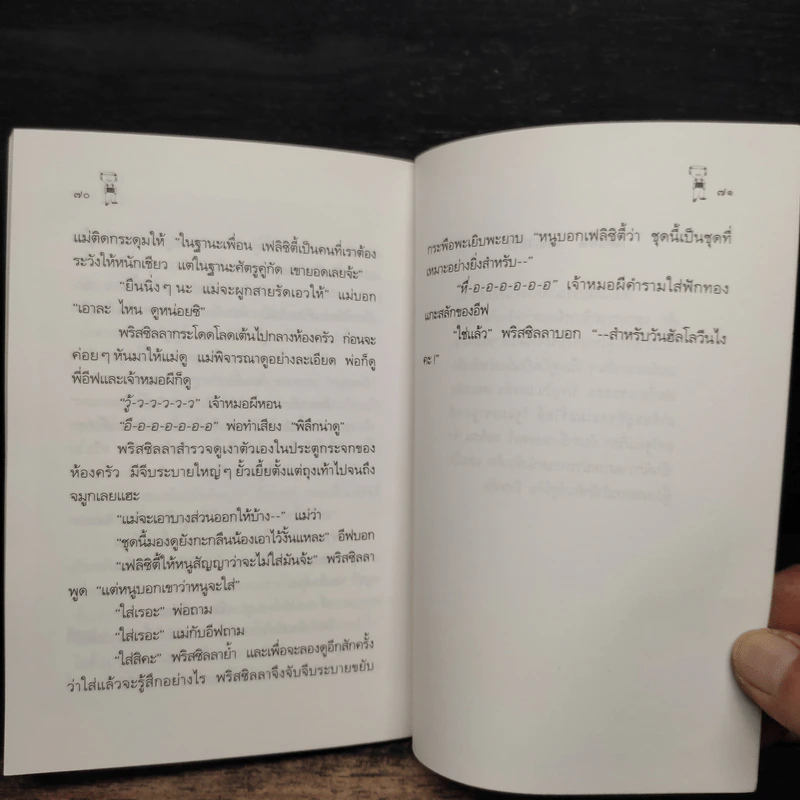 ๗๐
แม่ติดกระดุมให้ "ในฐานะเพื่อน เฟลิซิตี้เป็นคนที่เราต้อง
ระวังให้หนักเชียว แต่ในฐานะศัตรูคู่กัด เขายอดเลยจ้ะ"
"ยืนนิ่งๆ นะ แม่จะผูกสายรัดเอวให้" แม่บอก
"เอาละ ไหน ดูหน่อยซิ"
พริสซิลลากระโดดโลดเต้นไปกลางห้องครัว ก่อนจะ
ค่อยๆ หันมาให้แม่ดู แม่พิจารณาดูอย่างละเอียด พ่อก็ดู
พี่อีฟและเจ้าหมอผีก็ดู
"วู้-ว-ว-ว-ว-ว" เจ้าหมอผีหอน
"อื๊อ-อ-อ-อ-อ-อ-อ" พ่อทำเสียง "พิลึกน่าดู"
พริสซิลลาสำรวจดูเงาตัวเองในประตูกระจกของ
ห้องครัว มีจีบระบายใหญ่ๆ ยั้วเยี้ยตั้งแต่ถุงเท้าไปจนถึง
จมูกเลยแฮะ
"แม่จะเอาบางส่วนออกให้บ้าง--" แม่ว่า
"ชุดนี้มองดูยังกะกลืนน้องเอาไว้งั้นแหละ" อีฟบอก
"เฟลิซิตี้ให้หนูสัญญาว่าจะไม่ใส่มันจ้ะ" พริสซิลลา
พูด "แต่หนูบอกเขาว่าหนูจะใส่"
"ใส่เรอะ" พ่อถาม
"ใส่เรอะ" แม่กับอีฟถาม
"ใส่สิคะ" พริสซิลลาย้ำ และเพื่อจะลองดูอีกสักครั้ง
ว่าใส่แล้วจะรู้สึกอย่างไร พริสซิลลาจึงจับจีบระบายขยับ
๗๑
กระพือพะเยิบพะยาบ "หนูบอกเฟลิซิตี้ว่า ชุดนี้เป็นชุดที่
เหมาะอย่างยิ่งสำหรับ--"
"ฮี่-อ-อ-อ-อ-อ-อ-อ" เจ้าหมอผีคำรามใส่ฟักทอง
แกะสลักของอีฟ
"ใช่แล้ว" พริสซิลลาบอก "--สำหรับวันฮัลโลวีนไง
คะ!"